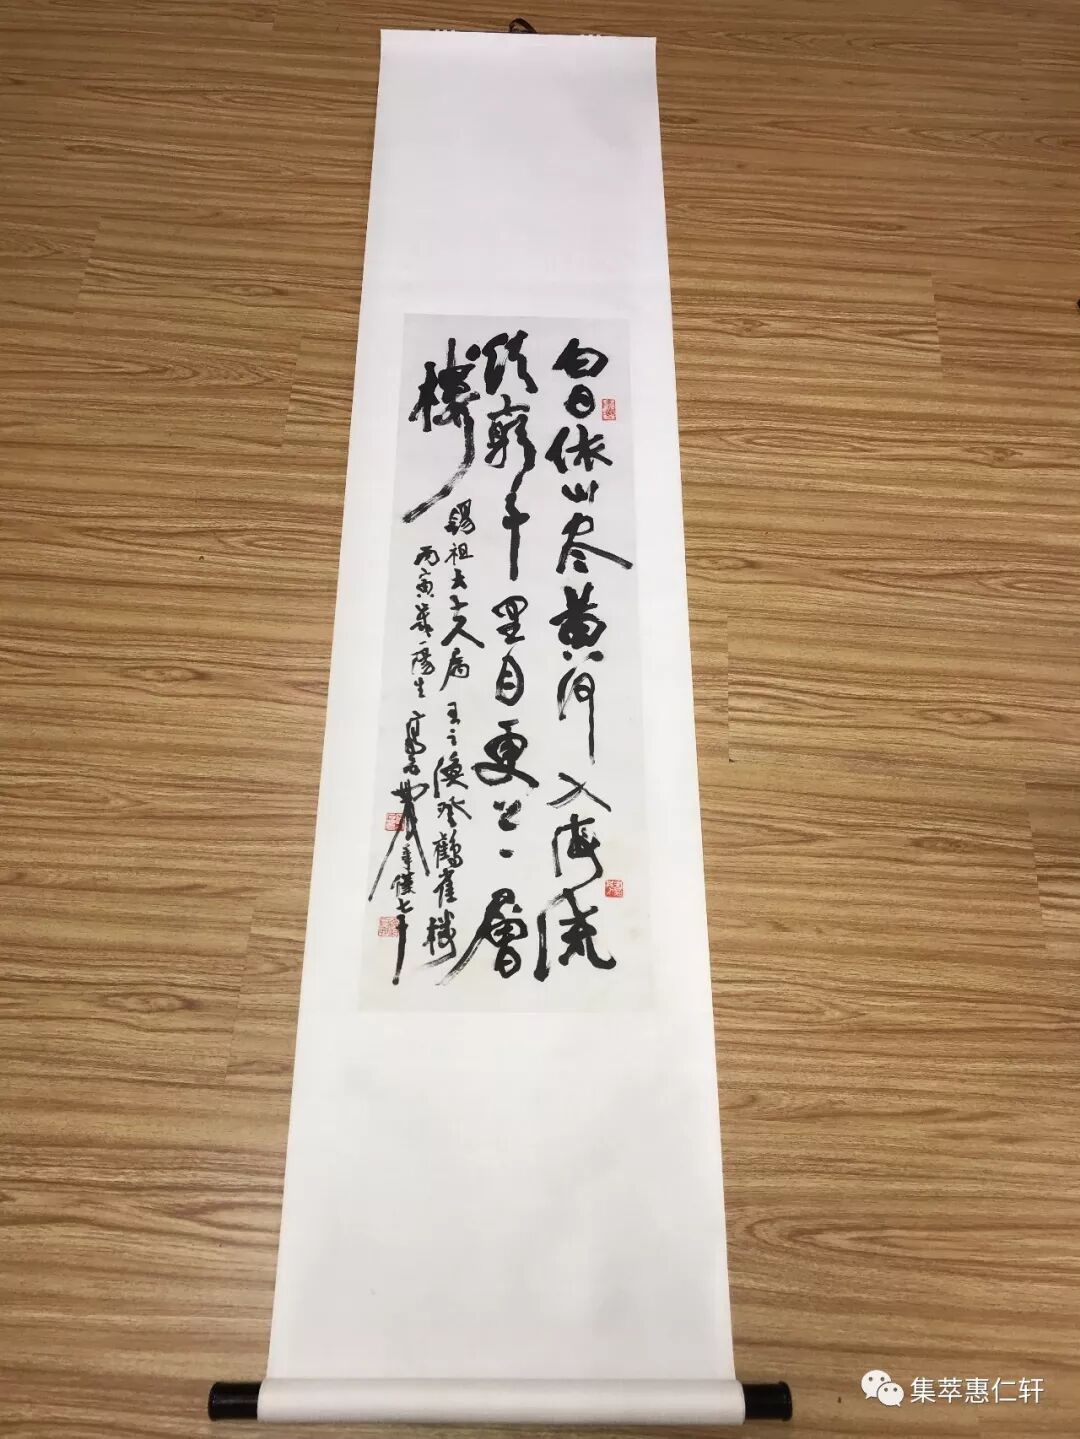 白日依山尽黄河入海流
欲穷千里目更上一层
楼
锡祖大夫人属 王之涣登鹳雀楼
丙寅岁一阳生 年仅七十
集萃惠仁轩